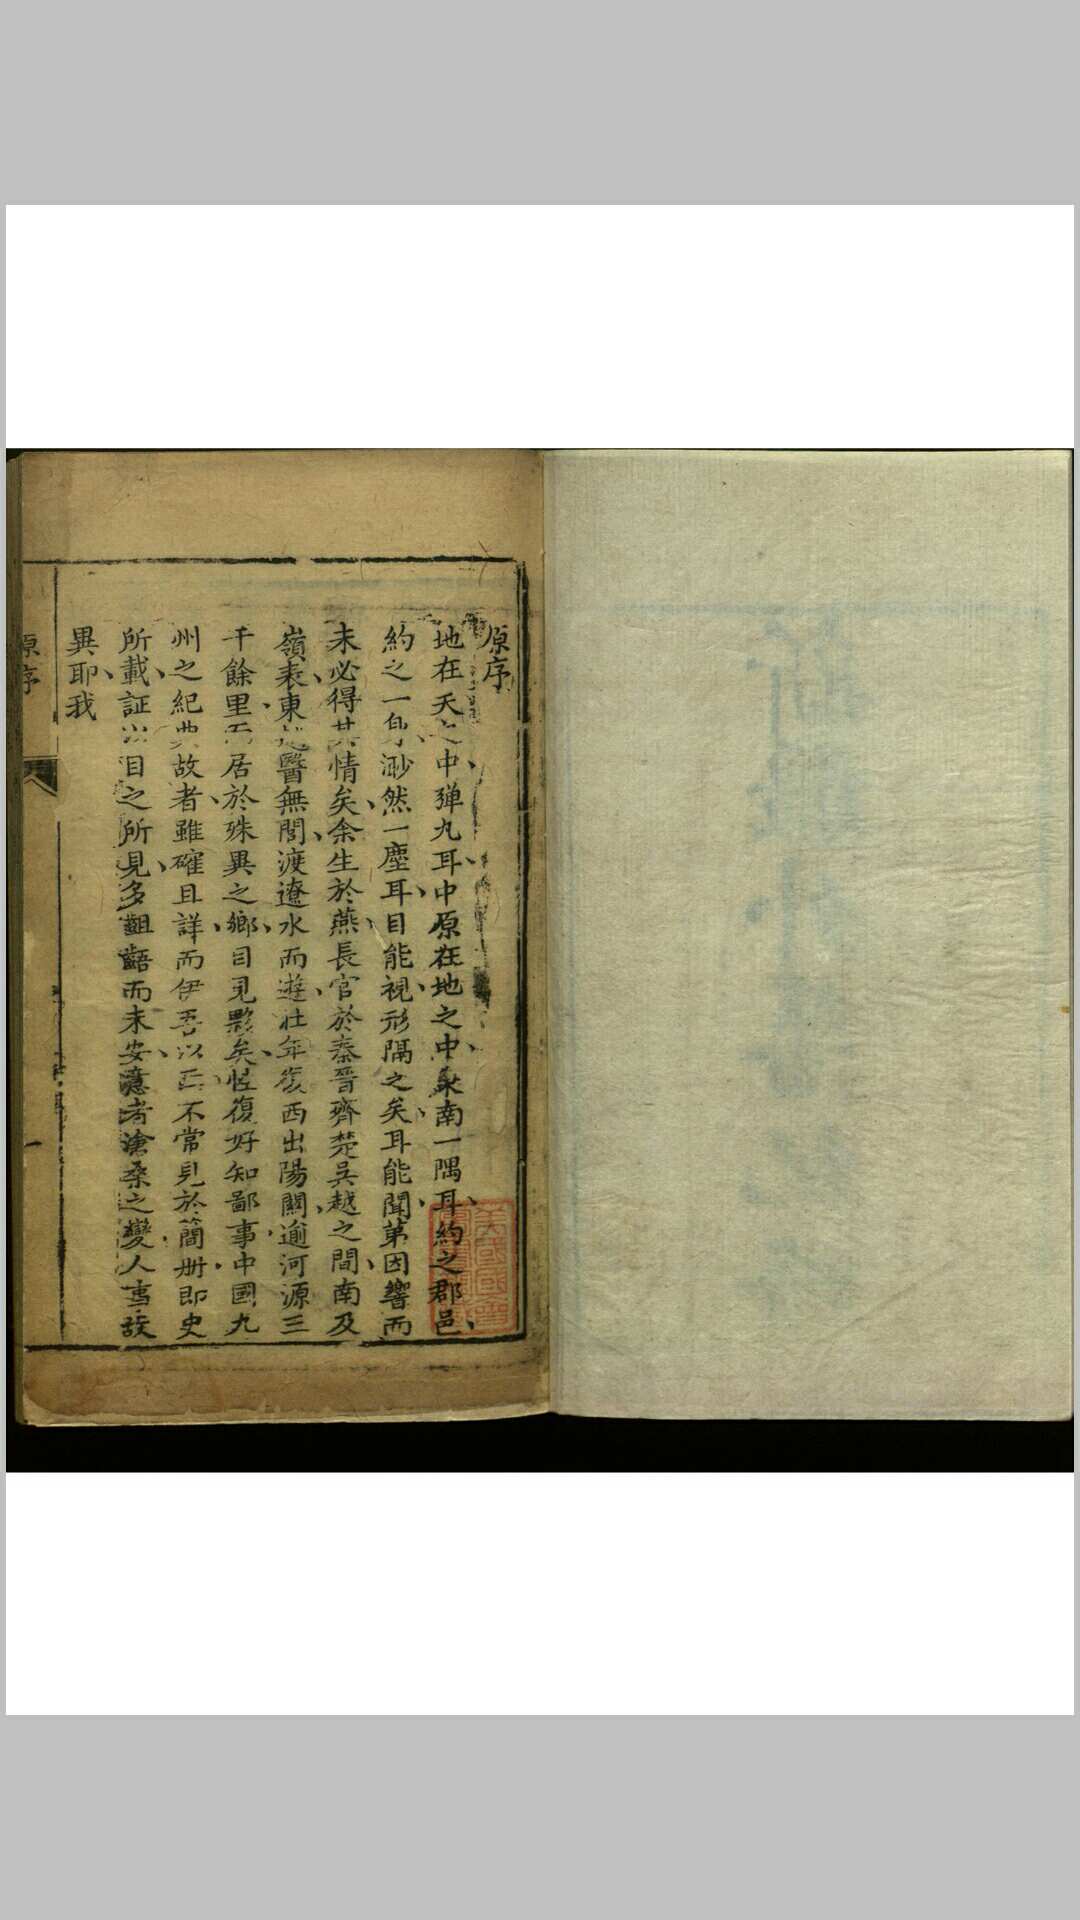 原序
地在天之中彈丸耳中原在地之中東南一隅耳約之郡邑
約之一身渺然一塵耳目能視形隔之矣耳能聞第因響而
未必得其情矣余生於燕長官於秦晉齊楚吳越之間南及
嶺表東 醫無閭渡遼水而遊壯年復西出陽關逾河源三
千餘里而居於殊異之鄉目見夥矣性復好知鄙事中國九
州之紀典故者雖確且詳而伊吾以西不常見於簡册即史
所載証以目之所見多齟齬而未安意者滄桑之變人事故
異耶我
原序
一